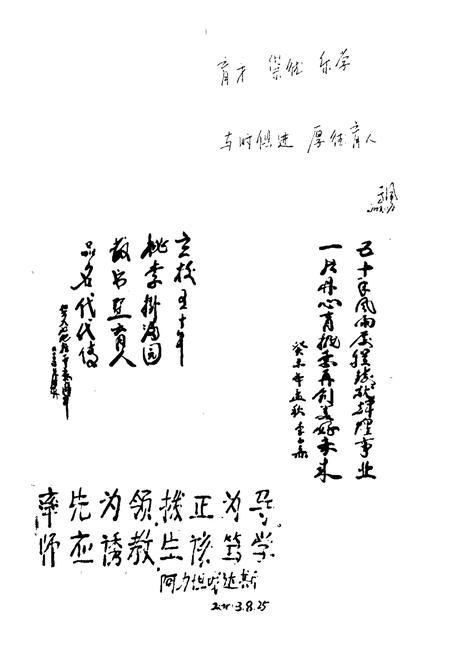 育才 崇德 乐学
与时俱进 厚德育人
五十年风雨历程铸就辉煌事业
一片丹心育桃李再创美好未来
癸未年孟秋
立校五十年
桃李掛满园
教书且育人
品名代代传
率先为领拨正为导
师应诱教生该笃学
阿力坦哈达斯
3.8.25